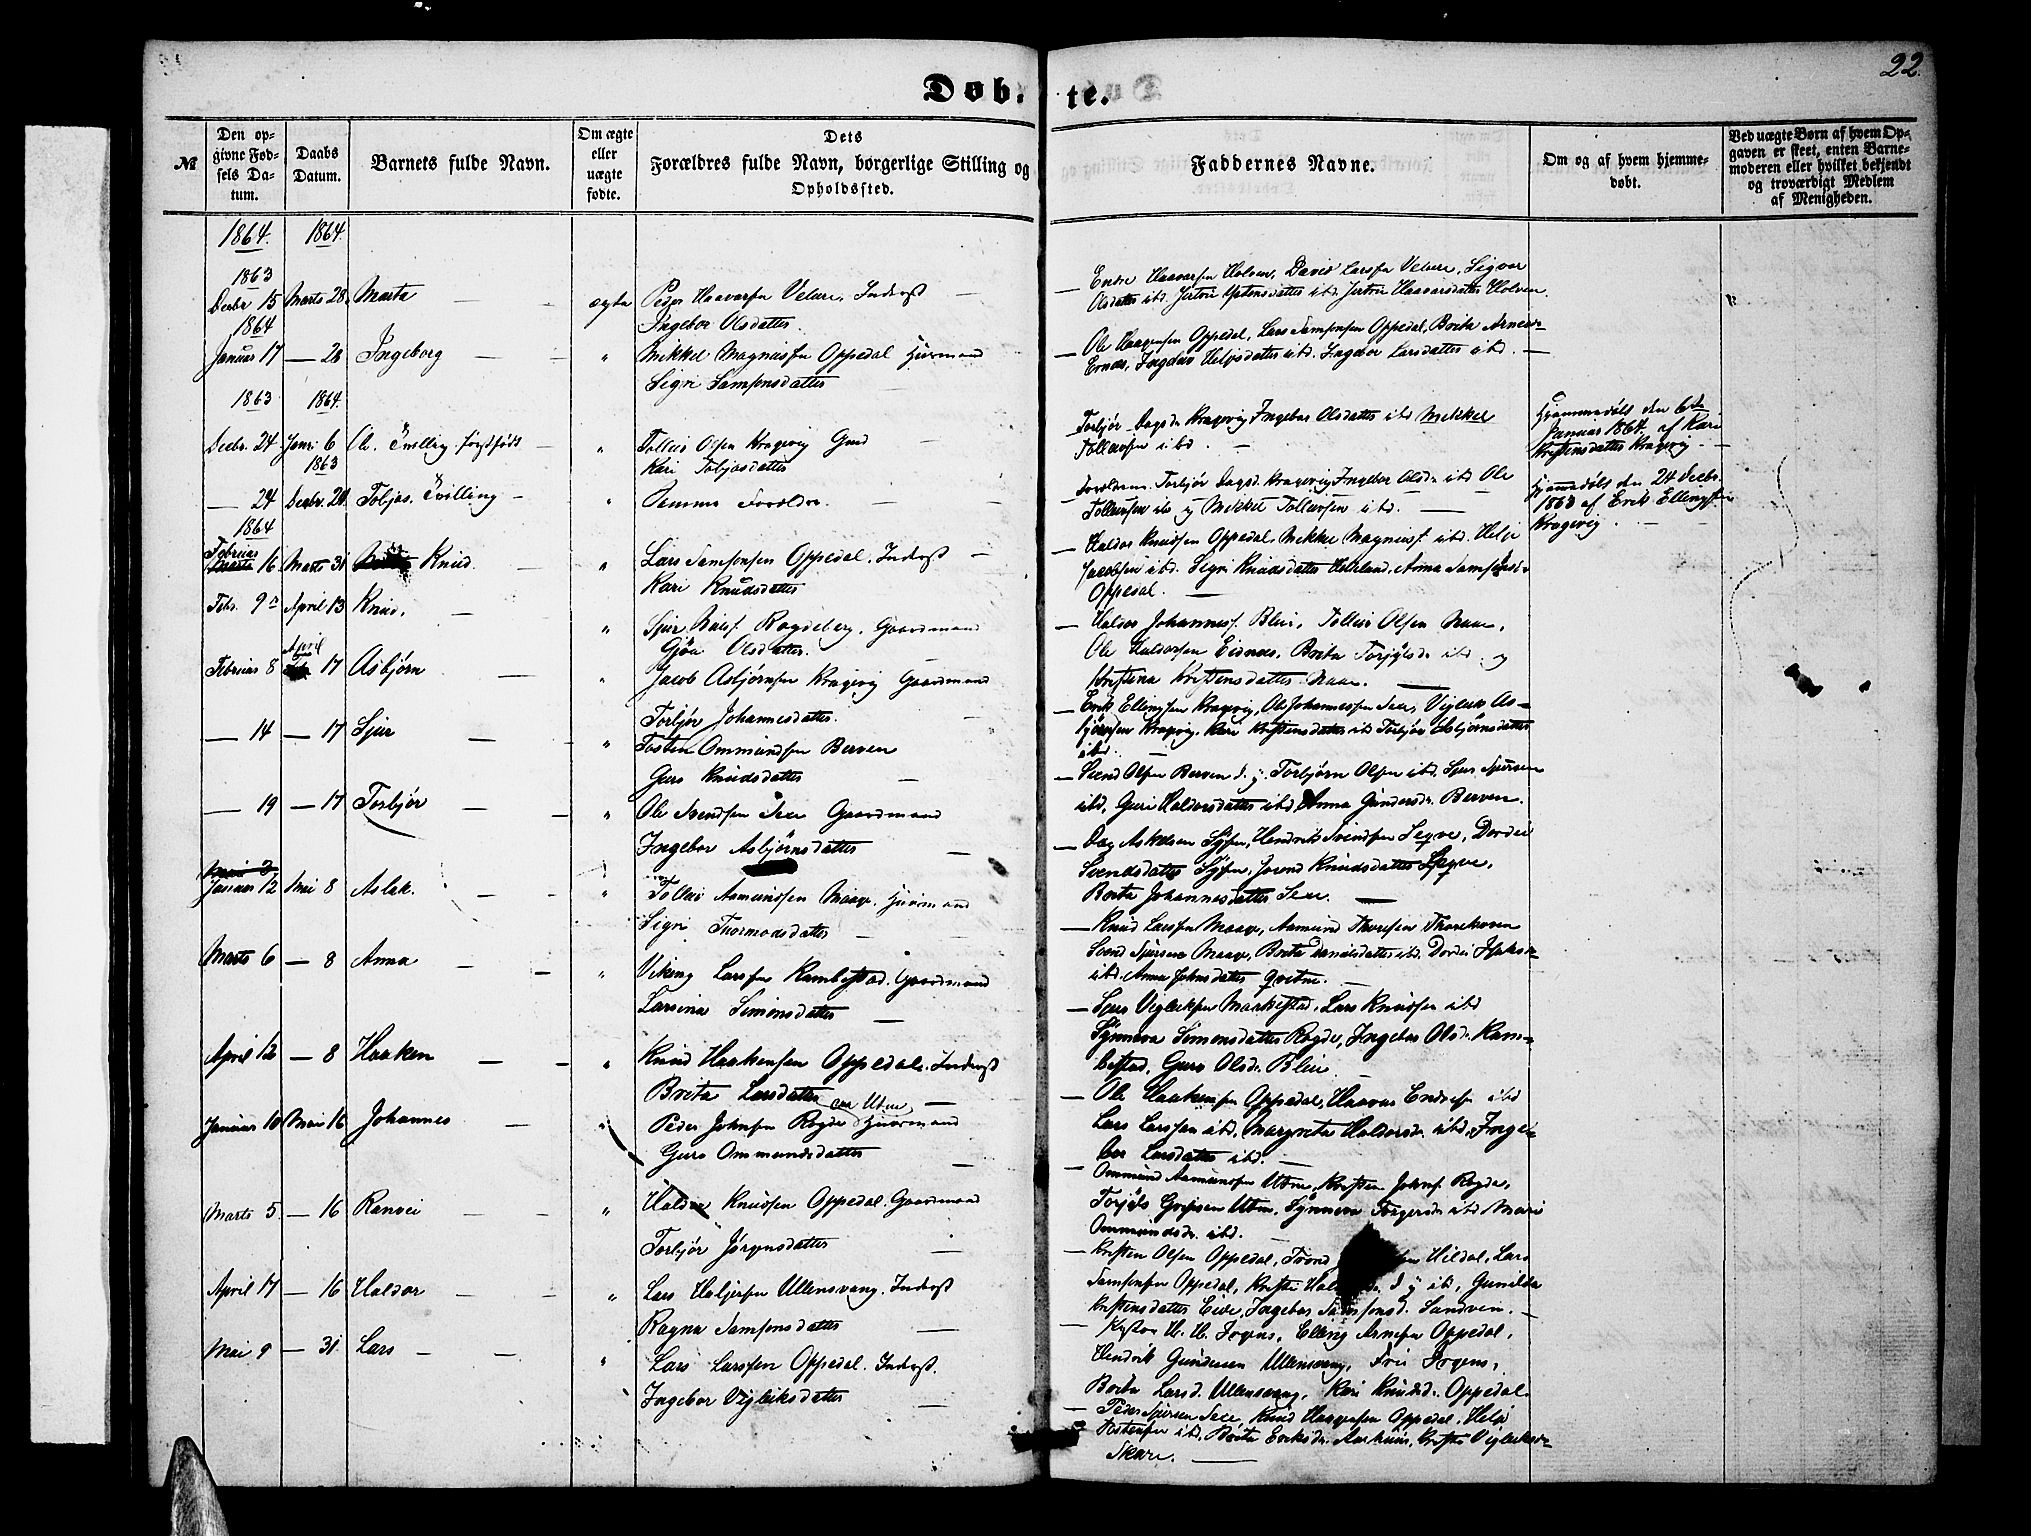 22.
Døb. te.
№
Den op-
givne Fød-
sels Da-
tum.
Daabs
Datum.
Barnets fulde Navn.
Om ægte
eller
uægte
fødte.
Dets
Forældres fulde Navn, borgerlige Stilling og
Opholdssted.
Faddernes Navne.
Om og af hvem hjemme-
døbt.
Ved uægte Børn af hvem Op-
gaven er skeet, enten Barne-
moderen eller hvilket bekjendt
og troværdigt Medlem
af Menigheden.
1864. 1864.
1863
Decbr 15 Marts 28 Marta ægte Peder Haavarsen Velure, Inderst
Ingebor Olsdatter.
Endre Haavarsen Holven, David Larssen Velure, Sigvor
Olsdatter ibd. Jertru Holven.
1864
Januar 17 — 28 Ingeborg " Mikkel Magnussen Oppedal Huusmand
Sigri Samsonsdatter
Ole Haagensen Oppedal, Lars Samsonsen Oppedal, Brita
Helgesdatter ibd. Ingebor Larsdatter ibd.
1863 1864.
Decbr. 24 Janr. 6 Ole. Tvilling førstfødt " Tolleiv Olsen Kragevig Grd
Kari Tobjasdatter
Torbjør Dagsdr Kragevig Ingebor Olsdatter ibd Mikkel
Tolleivsen ibd
Hjemmedøbt den 6te
Januar 1864 af Kari
Kristensdatter Kragevig
1863
— 24 Decbr. 24 Tobjas. Tvilling " Samme Forældre.
Forældrene. Torbjør Dagsd. Kragevig Ingebor Olsdr ibd Ole
Tolleivsen ibd og Mikkel Tolleivsen ibd.
Hjemmedøbt den 24 Decbr.
1863 af Erik Ellingsen
Kragevig.
1864
Februar 16 Marts 31 Knud. " Lars Samsonsen Oppedal. Inderst
Kari Knudsdatter
Haldor Knudsen Oppedal, Mikkel Magnuss. ibd. Helje
Jacobsen ibd. Sigri Knudsdatter Helleland, Anna Samsonsdr
Oppedal.
Febr. 9 April 13 Knud. " Sjur Rogdeberg. Gaardmand
Gjøa Olsdatter.
Haldor Johanness. Bleie, Tolleiv Olsen Naae,
Ole Haldorsen Eidnes, Brita Torjulsdr ibd og
Kristina Kristensdatter Naae.
Februar 8 April 17 Asbjørn " Jacob Asbjørnsen Kragevig Gaardmand
Torbjør Johannesdatter.
Erik Ellingsen Kragevig, Ole Johannessen Sexe, Vigleik As-
bjørnsen Kragevig, Kari Kristensdatter ibd Torbjør Asbjørnsdatter
ibd.
— 14 — 17 Sjur " Tosten Ommundsen Berven
Guro Knudsdatter
Svend Olsen Berven d. y. Torbjørn Olsen ibd. Sjur Sjursen
ibd. Guri Haldorsdatter ibd, Anna Gundersdr. Berven.
— 19 — 17 Torbjør " Ole Svendsen Sexe Gaardmand
Ingebor Asbjørnsdatter
Dag Askelsen Sysen, Hendrik Svendsen Seqve, Dordei
Svendsdatter Sysen, Jorend Knudsdatter Seqve,
Brita Johannesdatter Sexe.
Januar 12 Mai 8 Aslak. " Tolleiv Asmundsen Maage. Huusmand
Sigri Thormodsdatter
Knud Larssen Maage, Aamund
Svend Sjursen Maage, Brita Danielsdatter ibd. Dordei
ibd. Anna Johnsdatter Qvitne.
Marts 6 — 8 Anna " Viking Larssen Rambestad. Gaardmand
Larsina Simonsdatter
Sjur Vigleiksen Maakestad, Lars Knudsen ibd
Synneva Simonsdatter Rogde, Ingebor Olsdr. Ram-
bestad, Guro Olsdr. Bleie
April 12 — 8 Haaken " Knud Haakensen Oppedal. Inderst
Brita Larsdatter
Ole Haakensen Oppedal, Haavar Endresen ibd
Lars Larssen ibd, Margreta Haldorsdr. ibd, Inge-
bor Larsdatter ibd.
Januar 10 Mai 16 Johannes " Peder Johnsen Rogde Huusmand
Guro Ommundsdatter
Ommund Aamundsen Utne, Kristen Johns. Rogde,
Utne, Synneva Torgersdr ibd Mari
Ommundsdr. ibd.
Marts 5 — 16 Ranvei " Haldor Knudsen Oppedal. Gaardmand
Torbjør Jørgensdatter
Kristen Olsen Oppedal, Trond Hildal, Lars
Samsonsen Oppedal, d y ibd, Gunilda
Kristensdatter Eide, Ingebor Samsonsd. Sandven.
April 17 — 16 Haldor " Lars Heljesen Ullensvang. Inderst
Ragna Samsonsdatter
H. H. Elling Arnesen Oppedal,
Hendrik Gundersen Ullensvang,
Brita Larsd. Ullensvang, Kari Knudsdr. Oppedal
Mai 9 — 31. Lars " Lars Larssen Oppedal. Inderst.
Ingebor Vigleiksdatter
Peder Sjursen Sexe, Knud Haagensen Oppedal, Helje
Tostensen ibd, Brita Eriksdr. Vigleiksdr
Skare.